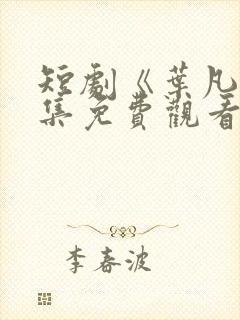 短劇《葉凡
集免費觀看
李春波